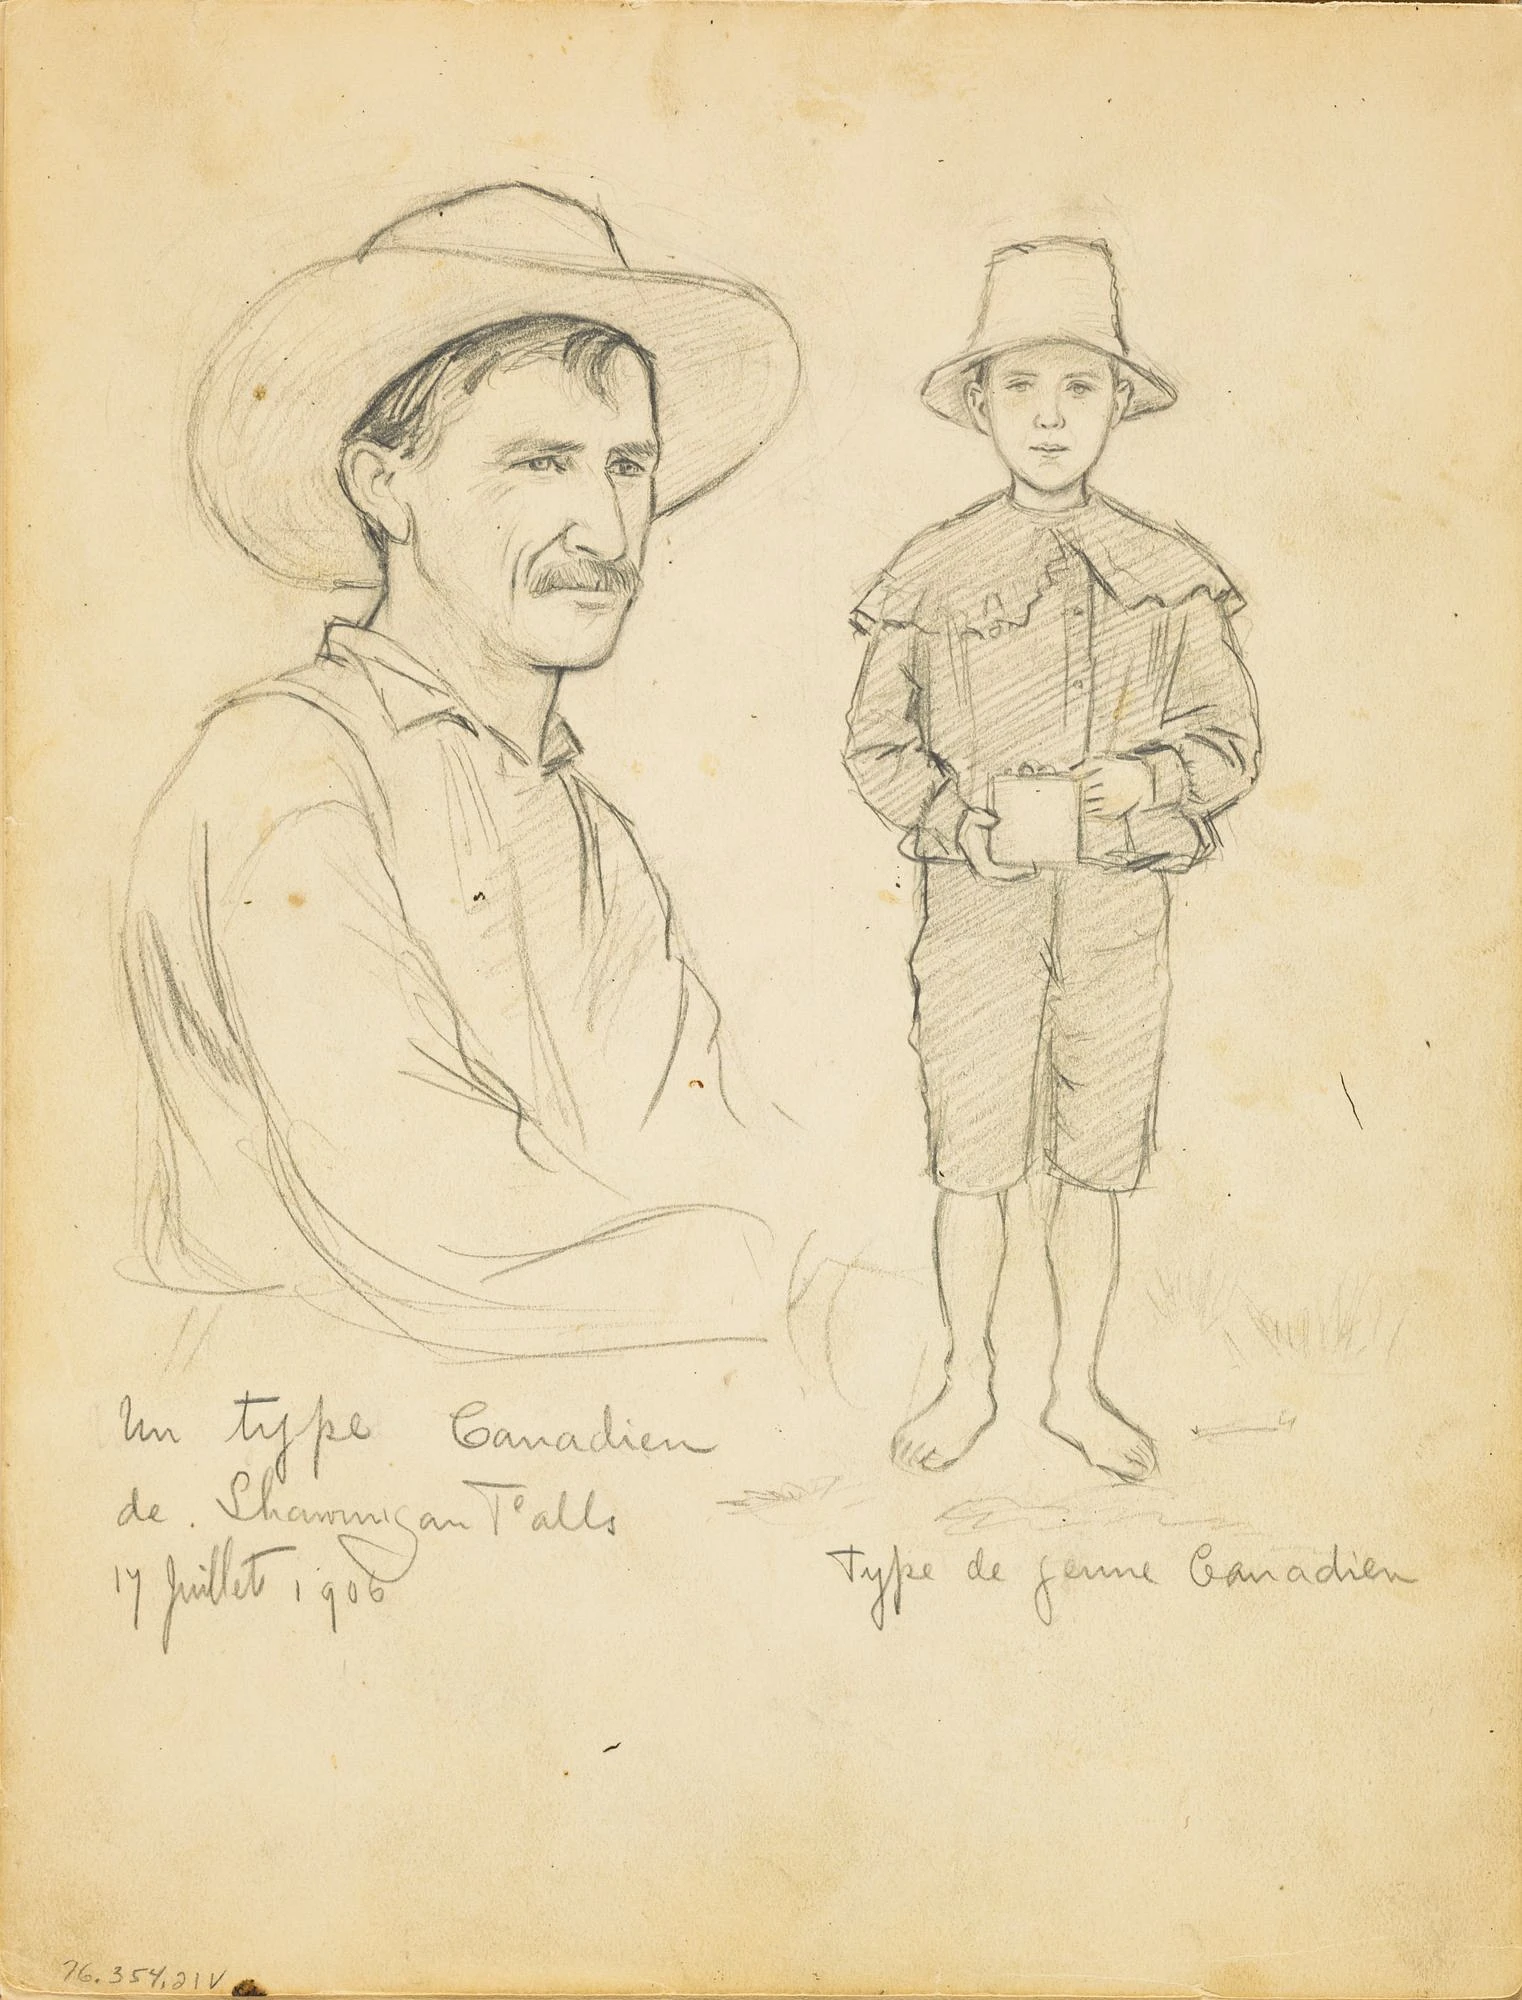 Un type Canadien
de Shawinigan Falls
17 Juillet 1906
Type de jeune Canadien
76.354.21V